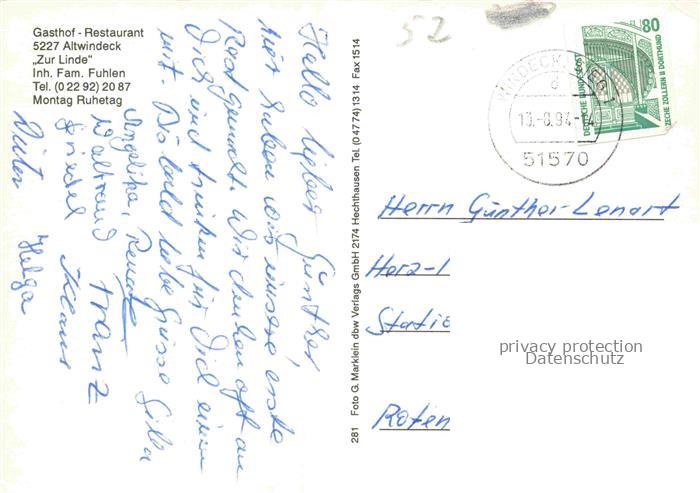 Gasthof - Restaurant
5227 Altwindeck
„Zur Linde"
Inh. Fam. Fuhlen
Tel. (0 22 92) 20 87
Montag Ruhetag
Hallo lieber Günther
hier haben wir unsere erste
Rast gemacht. Wir denken oft an
Dich und trinken für Dich einen
mit. Bis bald liebe Grüsse Silka
Angelika, Renate
Waltraud Franz
Friedel Klaus
Dieter Helga
281 Foto G. Marklein dbw Verlags GmbH 2174 Hechthausen Tel. (0 47 74) 1314 Fax 1514
52
80
DEUTSCHE BUNDESPOST
ZECHE ZOLLERN II DORTMUND
WINDECK
d
13.-8.94
51570
Herrn Günther Lenart
Herz-1
Static
privacy protection
Datenschutz
Roten